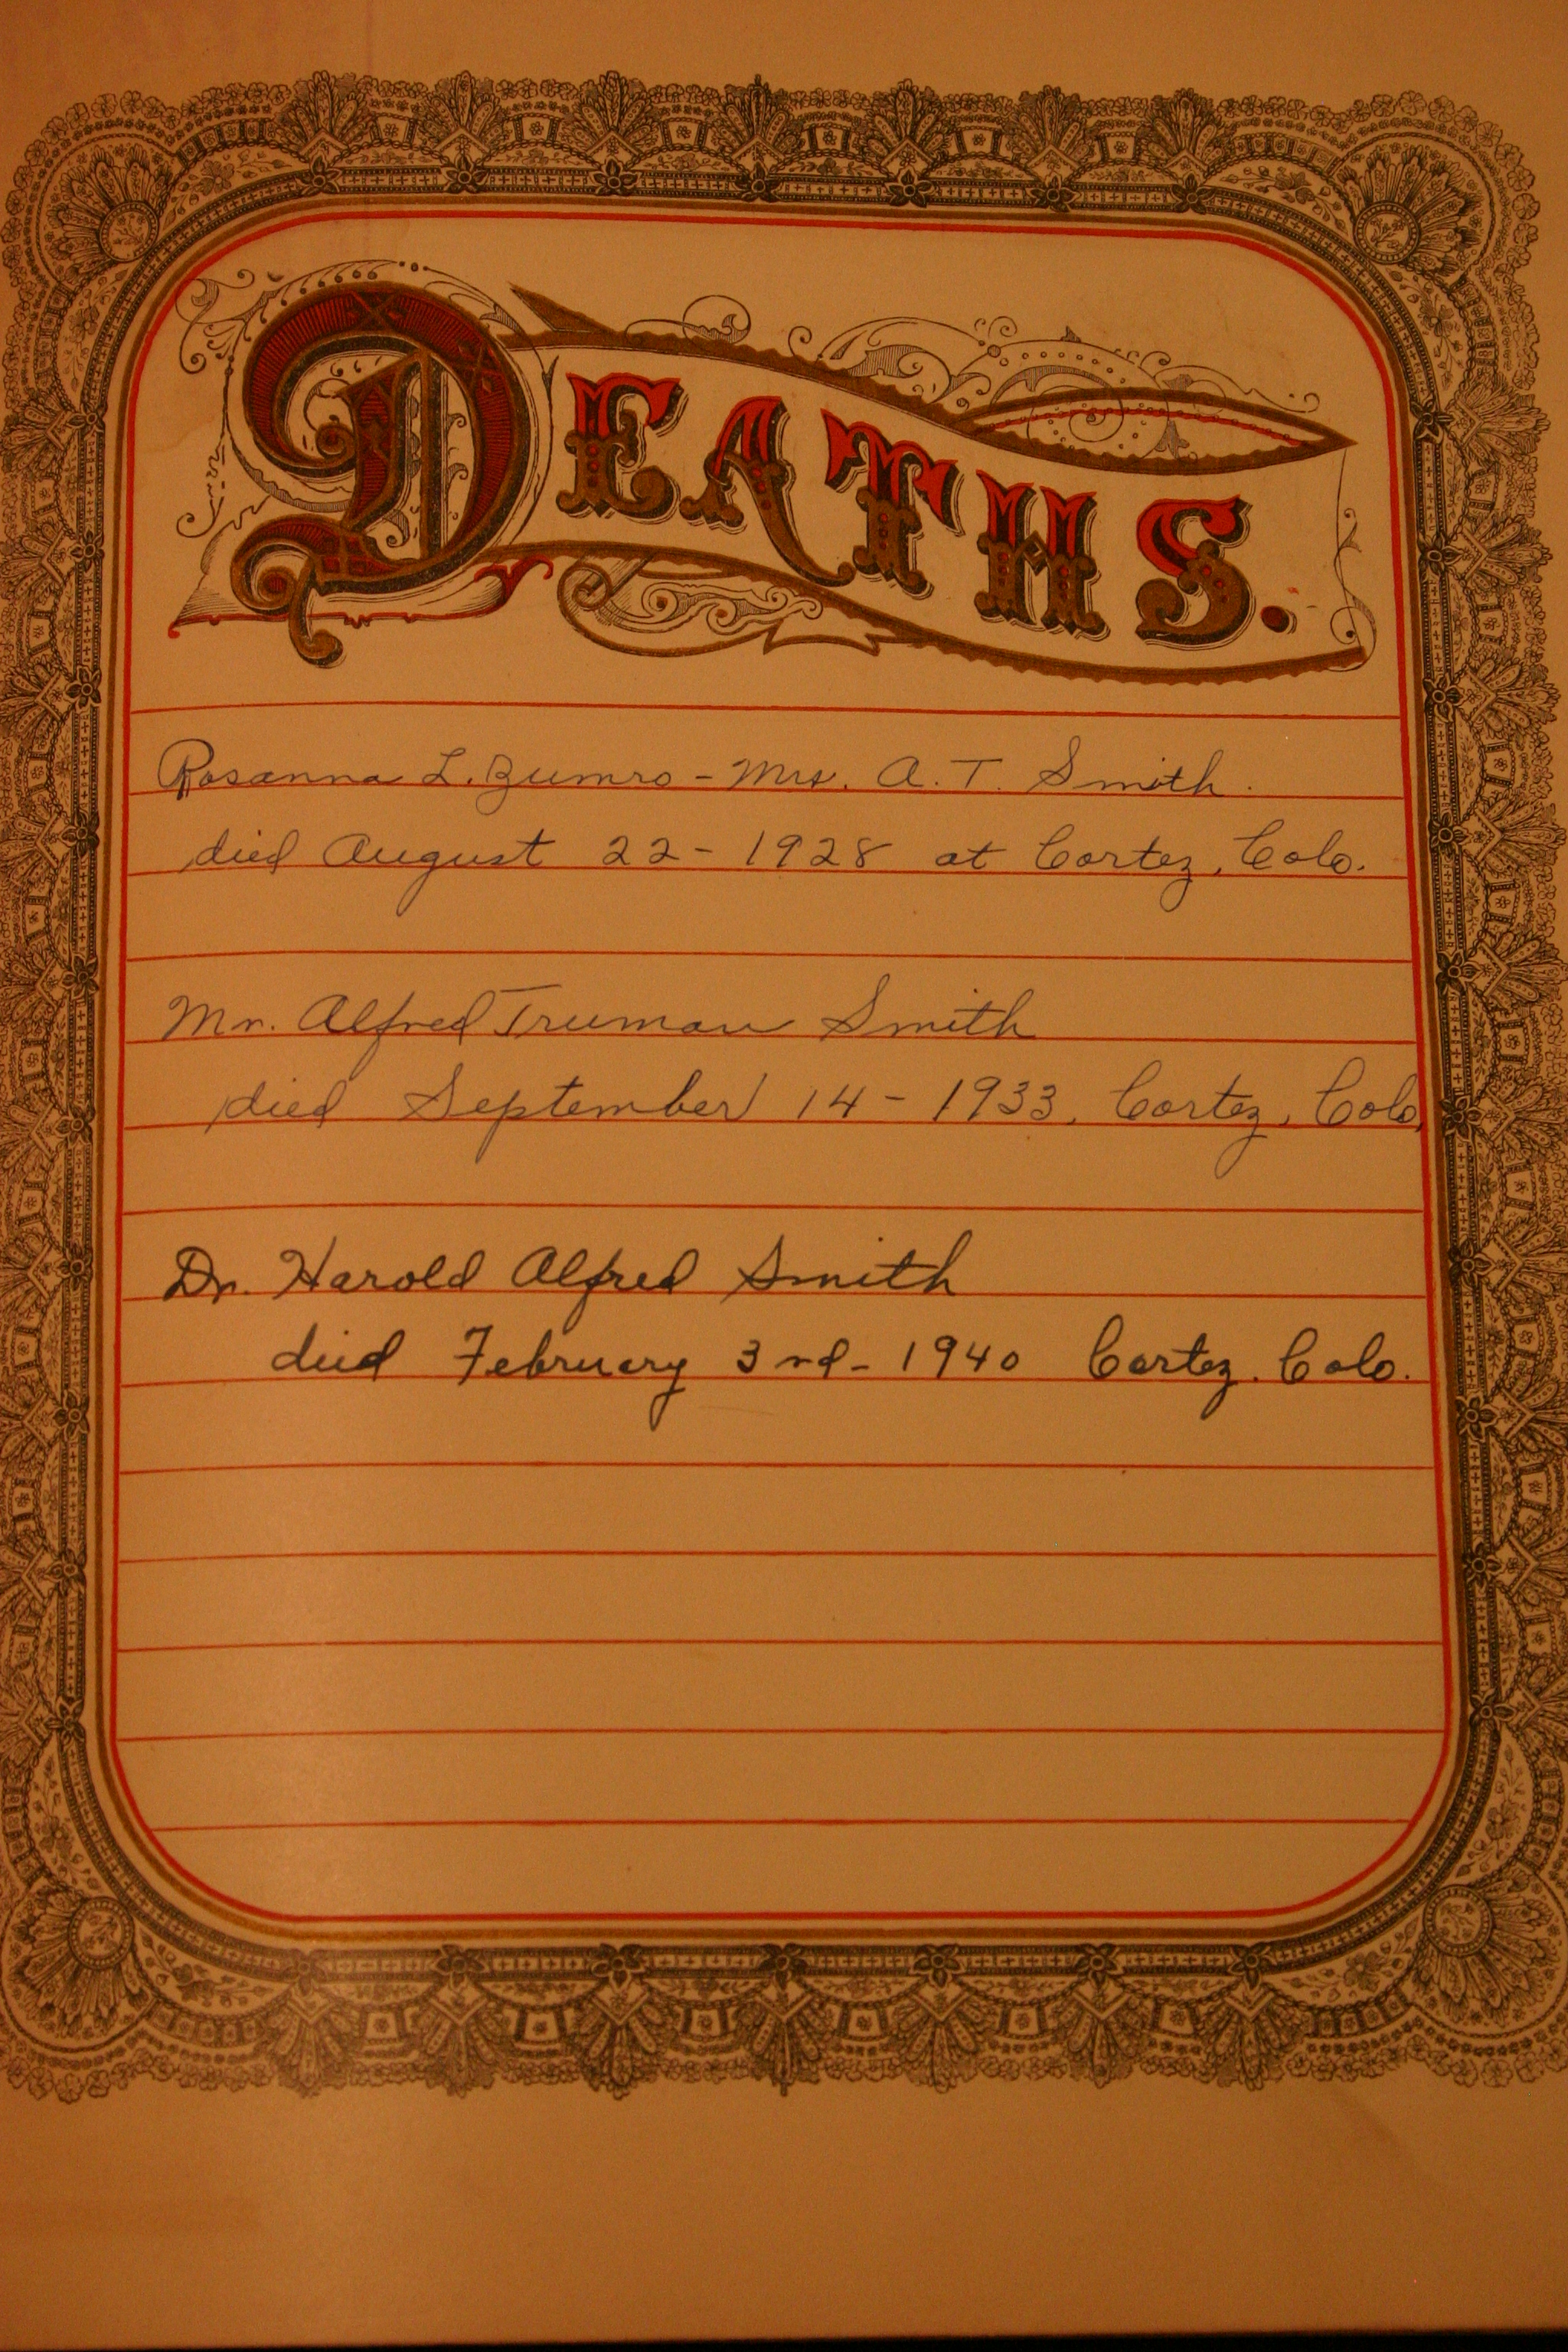 DEATHS.
Rosanna L. Zumro - Mrs. A. T. Smith.
died August 22 - 1928 at Cortez, Colo.
Mr. Alfred Truman Smith
died September 14 - 1933, Cortez, Colo.
Dr. Harold Alfred Smith
died February 3rd - 1940 Cortez. Colo.